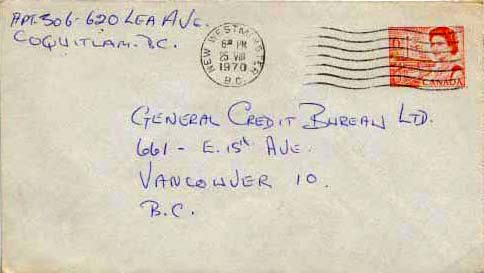 APT. 506-620 LEA AVE.
COQUITLAM. B.C.
NEW WESTMINSTER
6 PM
25 VIII
1970
B.C.
CANADA
GENERAL CREDIT BUREAU LTD.
661 - E. 15th AVE.
VANCOUVER 10.
B.C.